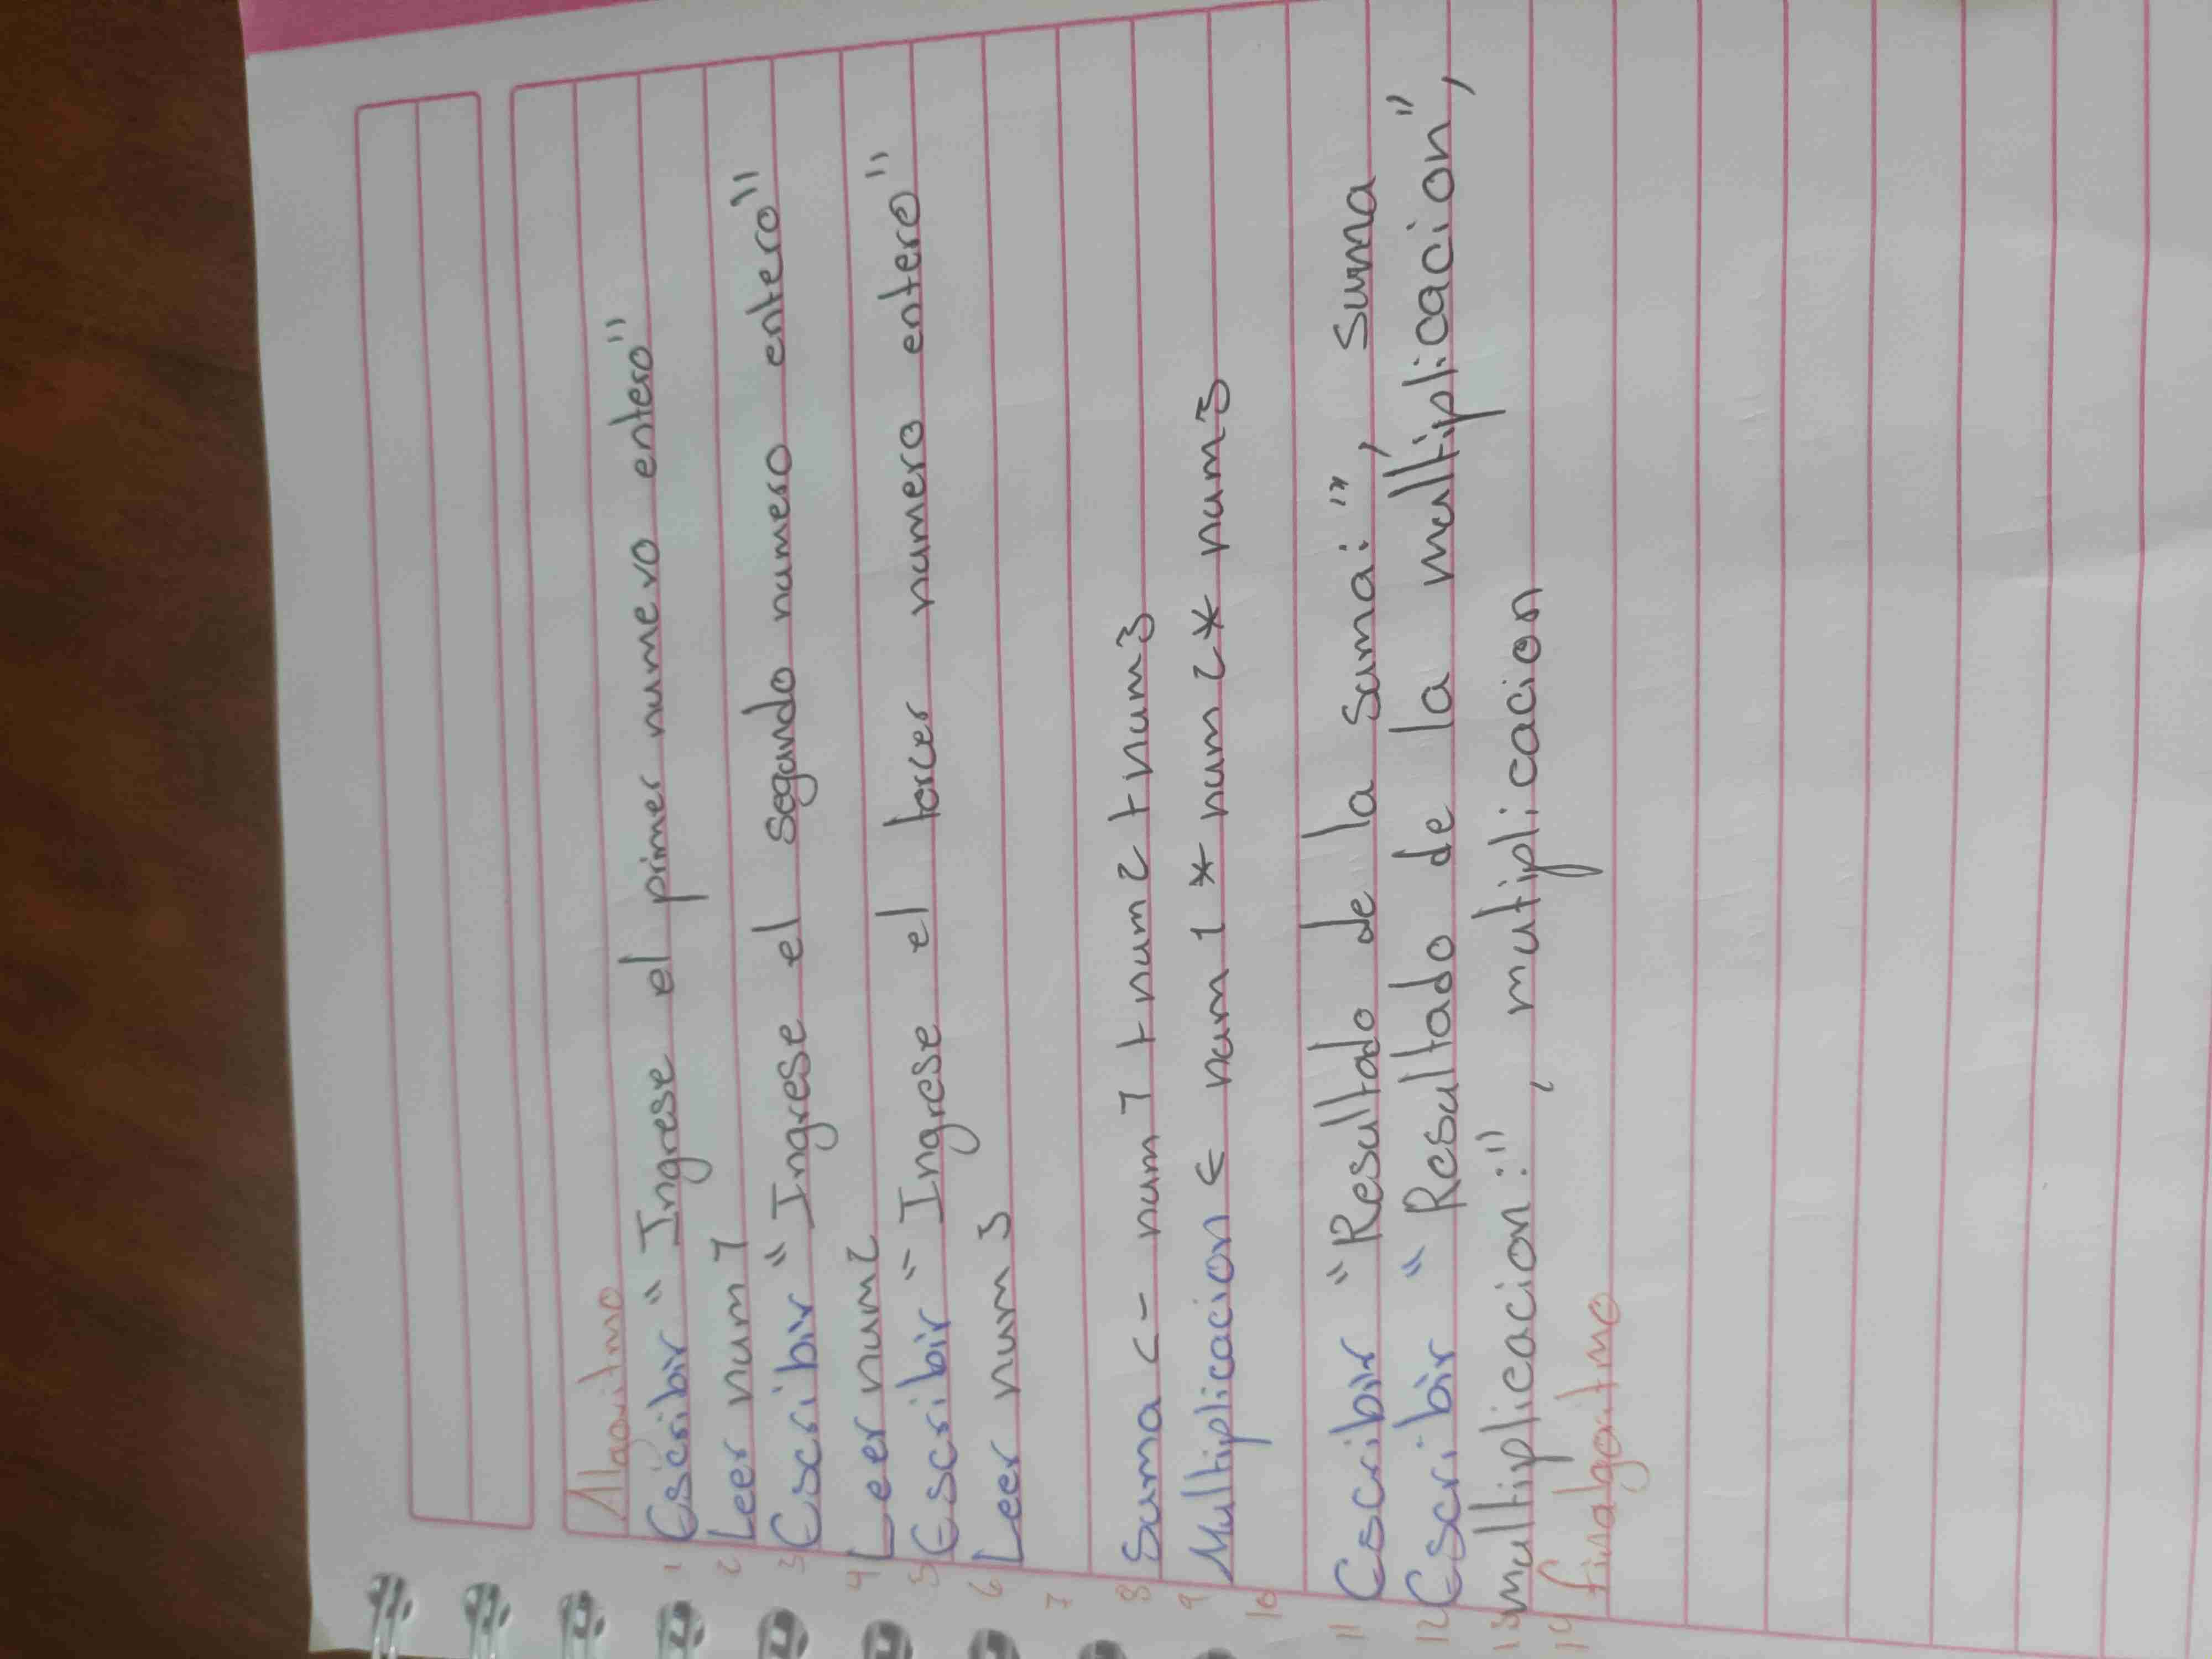 Algoritmo
1 Escribir "Ingrese el primer numero entero"
2 Leer num1
3 Escribir "Ingrese el segundo numero entero"
4 Leer num2
5 Escribir "Ingrese el tercer numero entero"
6 Leer num3
7
8 Suma <- num1 + num2 + num3
9 Multiplicacion < num1 * num2 * num3
10
11 Escribir "Resultado de la suma:", suma
12 Escribir "Resultado de la multiplicacion",
13 multiplicacion:", mutiplicacion
14 finalgoritmo